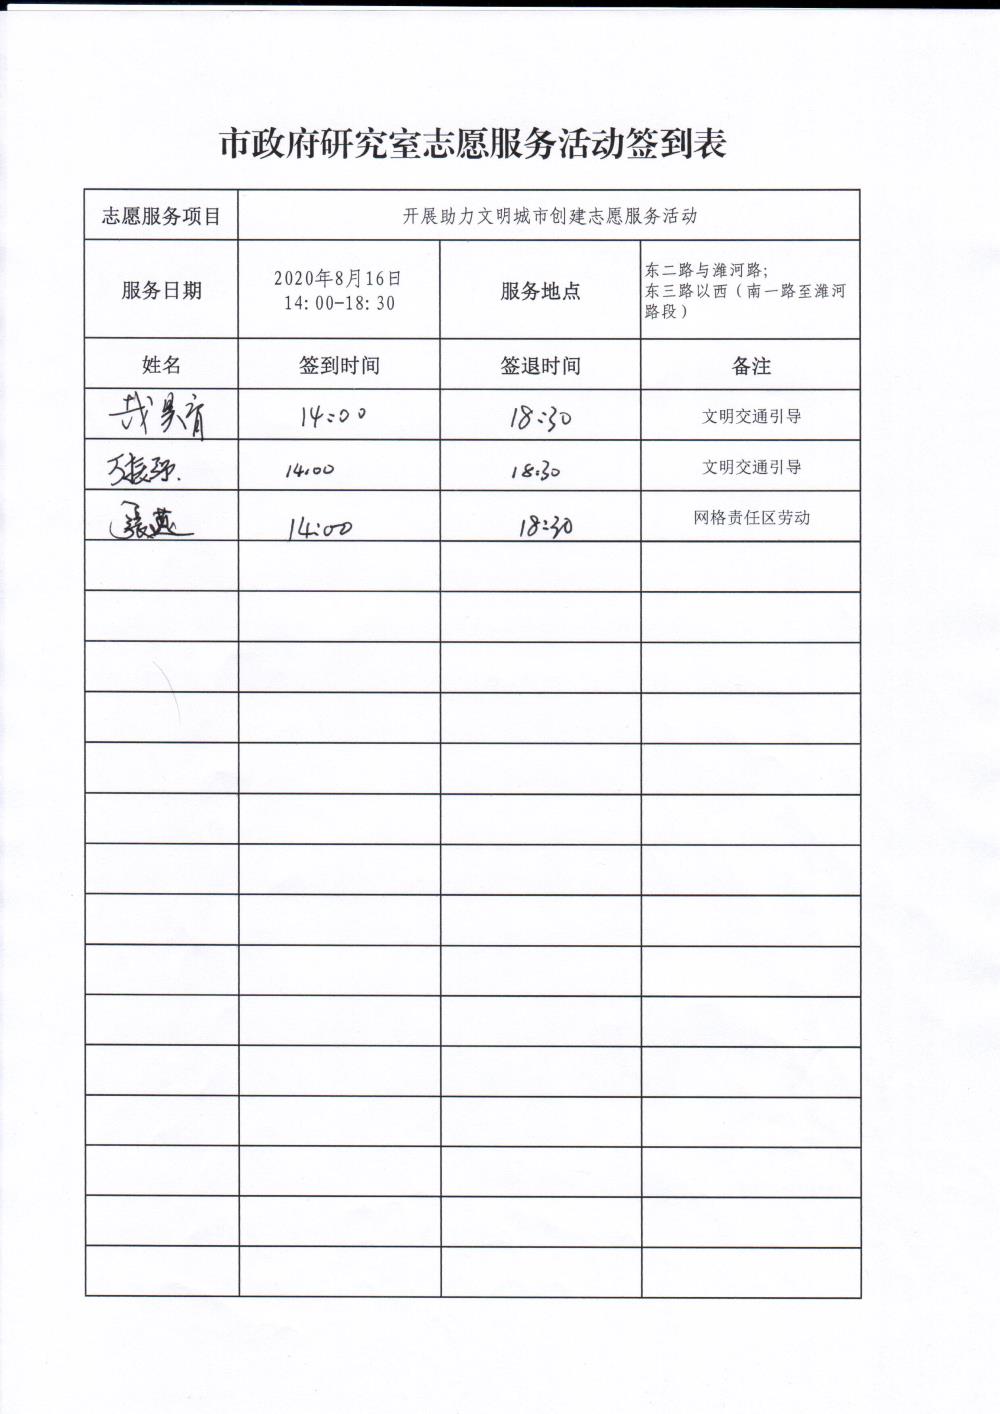 市政府研究室志愿服务活动签到表
志愿服务项目 开展助力文明城市创建志愿服务活动
服务日期 2020年8月16日 14:00-18:30 服务地点 东二路与潍河路;
东三路以西（南一路至潍河
路段）
姓名 签到时间 签退时间 备注
14:00 18:30 文明交通引导
14:00 18:30 文明交通引导
張燕 14:00 18:30 网格责任区劳动